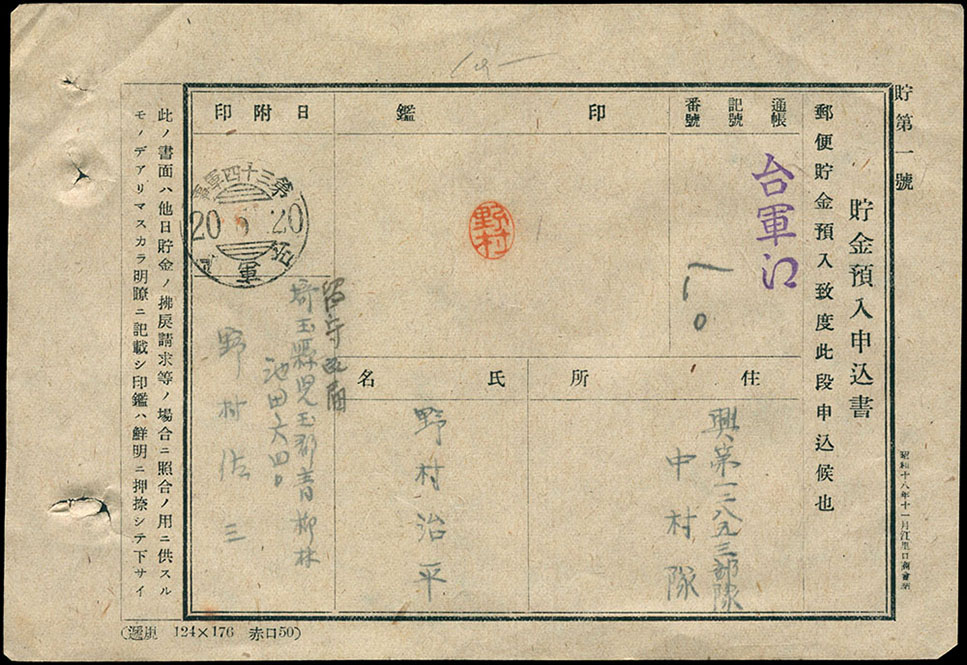 貯第一號
貯金預入申込書
昭和十八年十一月江里口商會
郵便貯金預入致度此段申込候也
通帳
記號
番號
台軍江
一一〇
印鑑
野村
日附印
第三十四軍
20 20
軍
住所
興第一二八九三部隊
中村隊
氏名
野村治平
留守
埼玉縣児玉郡青柳村
池田六四〇
野村佐三
此ノ書面ハ他日貯金ノ拂戻請求等ノ場合ニ照合ノ用ニ供スル
モノデアリマスカラ明瞭ニ記載シ印鑑ハ鮮明ニ押捺シテ下サイ
124×176 赤口50)